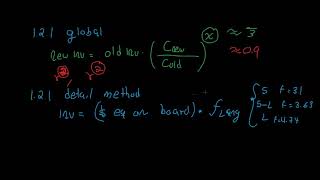 1.2.1 global
new inv = old inv. (Cnew / Cold)^x ≈ 
≈ 0.9
r② r②
1.2.1 detail method
inv = ($ eq on board) • fLang { S f=3.1
S-L f=3.63
L f=4.74